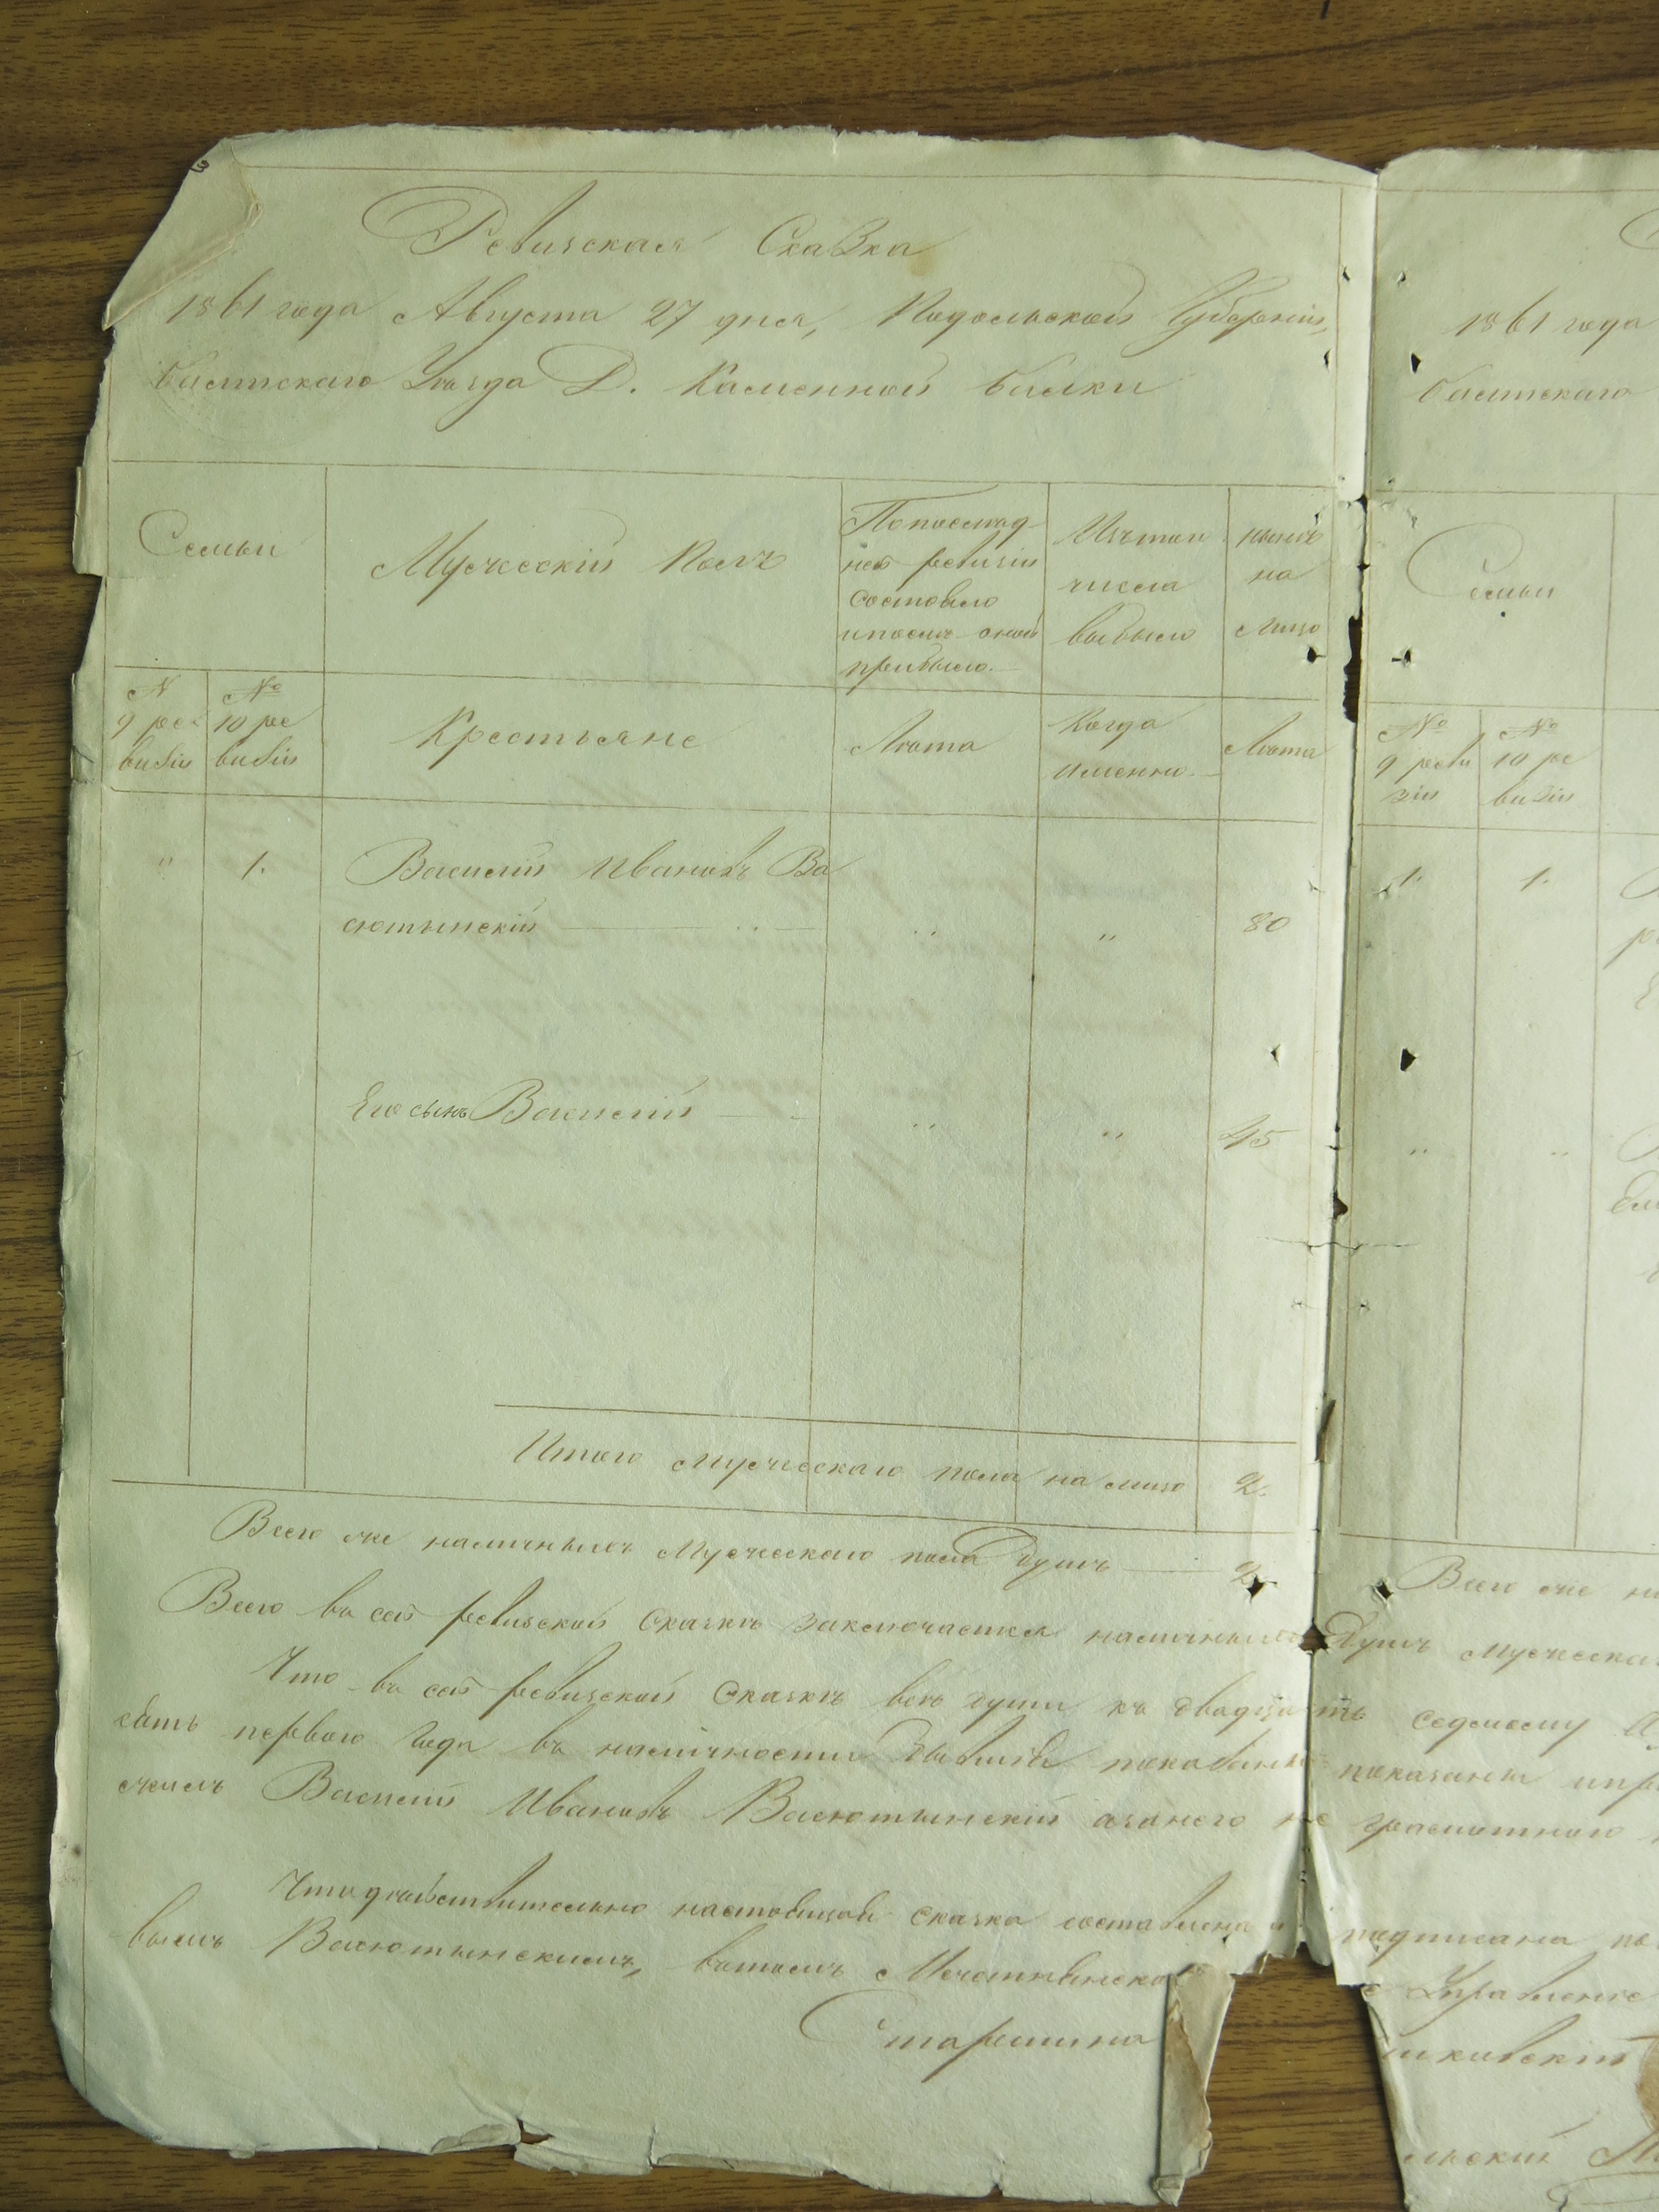 Ревизская Сказка
1861 года Августа 27 дня, Подольской Губерніи,
Балтскаго Уѣзда Д. Каменной балки
Семьи
Мужескій Полъ
По послѣд
ней ревизіи
состояло
и послѣ оной
прибыло.
Изъ того
числа
выбыло
нынѣ
на
лицо
№
9 ре
визіи
№
10 ре
визіи
Крестьяне
Лѣта
Когда
именно.
Лѣта
" 1. Василій Ивановъ Ва
сютынскій " " 80
Его сынъ Василій " " 45
Итого мужескаго пола на лицо 2.
Всего же наличныхъ Мужескаго пола душъ 2
Всего въ сей ревизской сказкѣ заключается наличныхъ Душъ Мужеска
Что въ сей ревизской сказкѣ всѣ души къ двадцать седьмому А
сятъ перваго года въ наличности показаны
Василій Ивановъ Васютынскій а за него не грамотнаго
Что дѣйствительно сказка составлена и подписана по
вымъ Васютынскимъ, въ томъ
Управленіе
Старшина
1861 года
Балтскаго
Семьи
№
9 реви
зіи
№
10 ре
визіи
1. 1.
" "
Всего же на